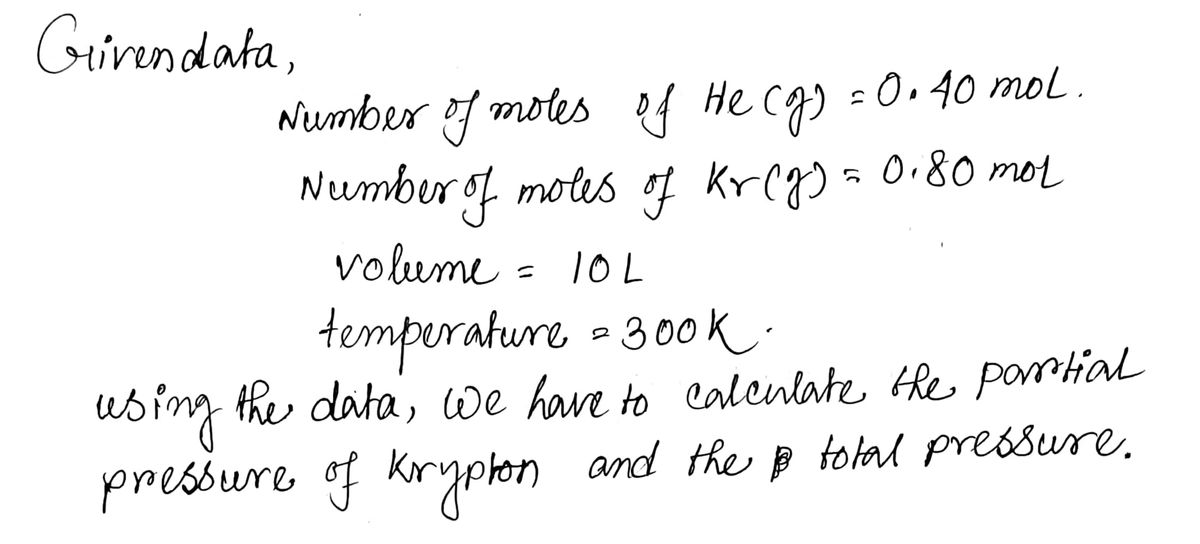 Given data,
Number of moles of He (g) = 0.40 mol.
Number of moles of Kr(g) = 0.80 mol
volume = 10 L
temperature = 300K.
using the data, we have to calculate the partial
pressure of Krypton and the total pressure.